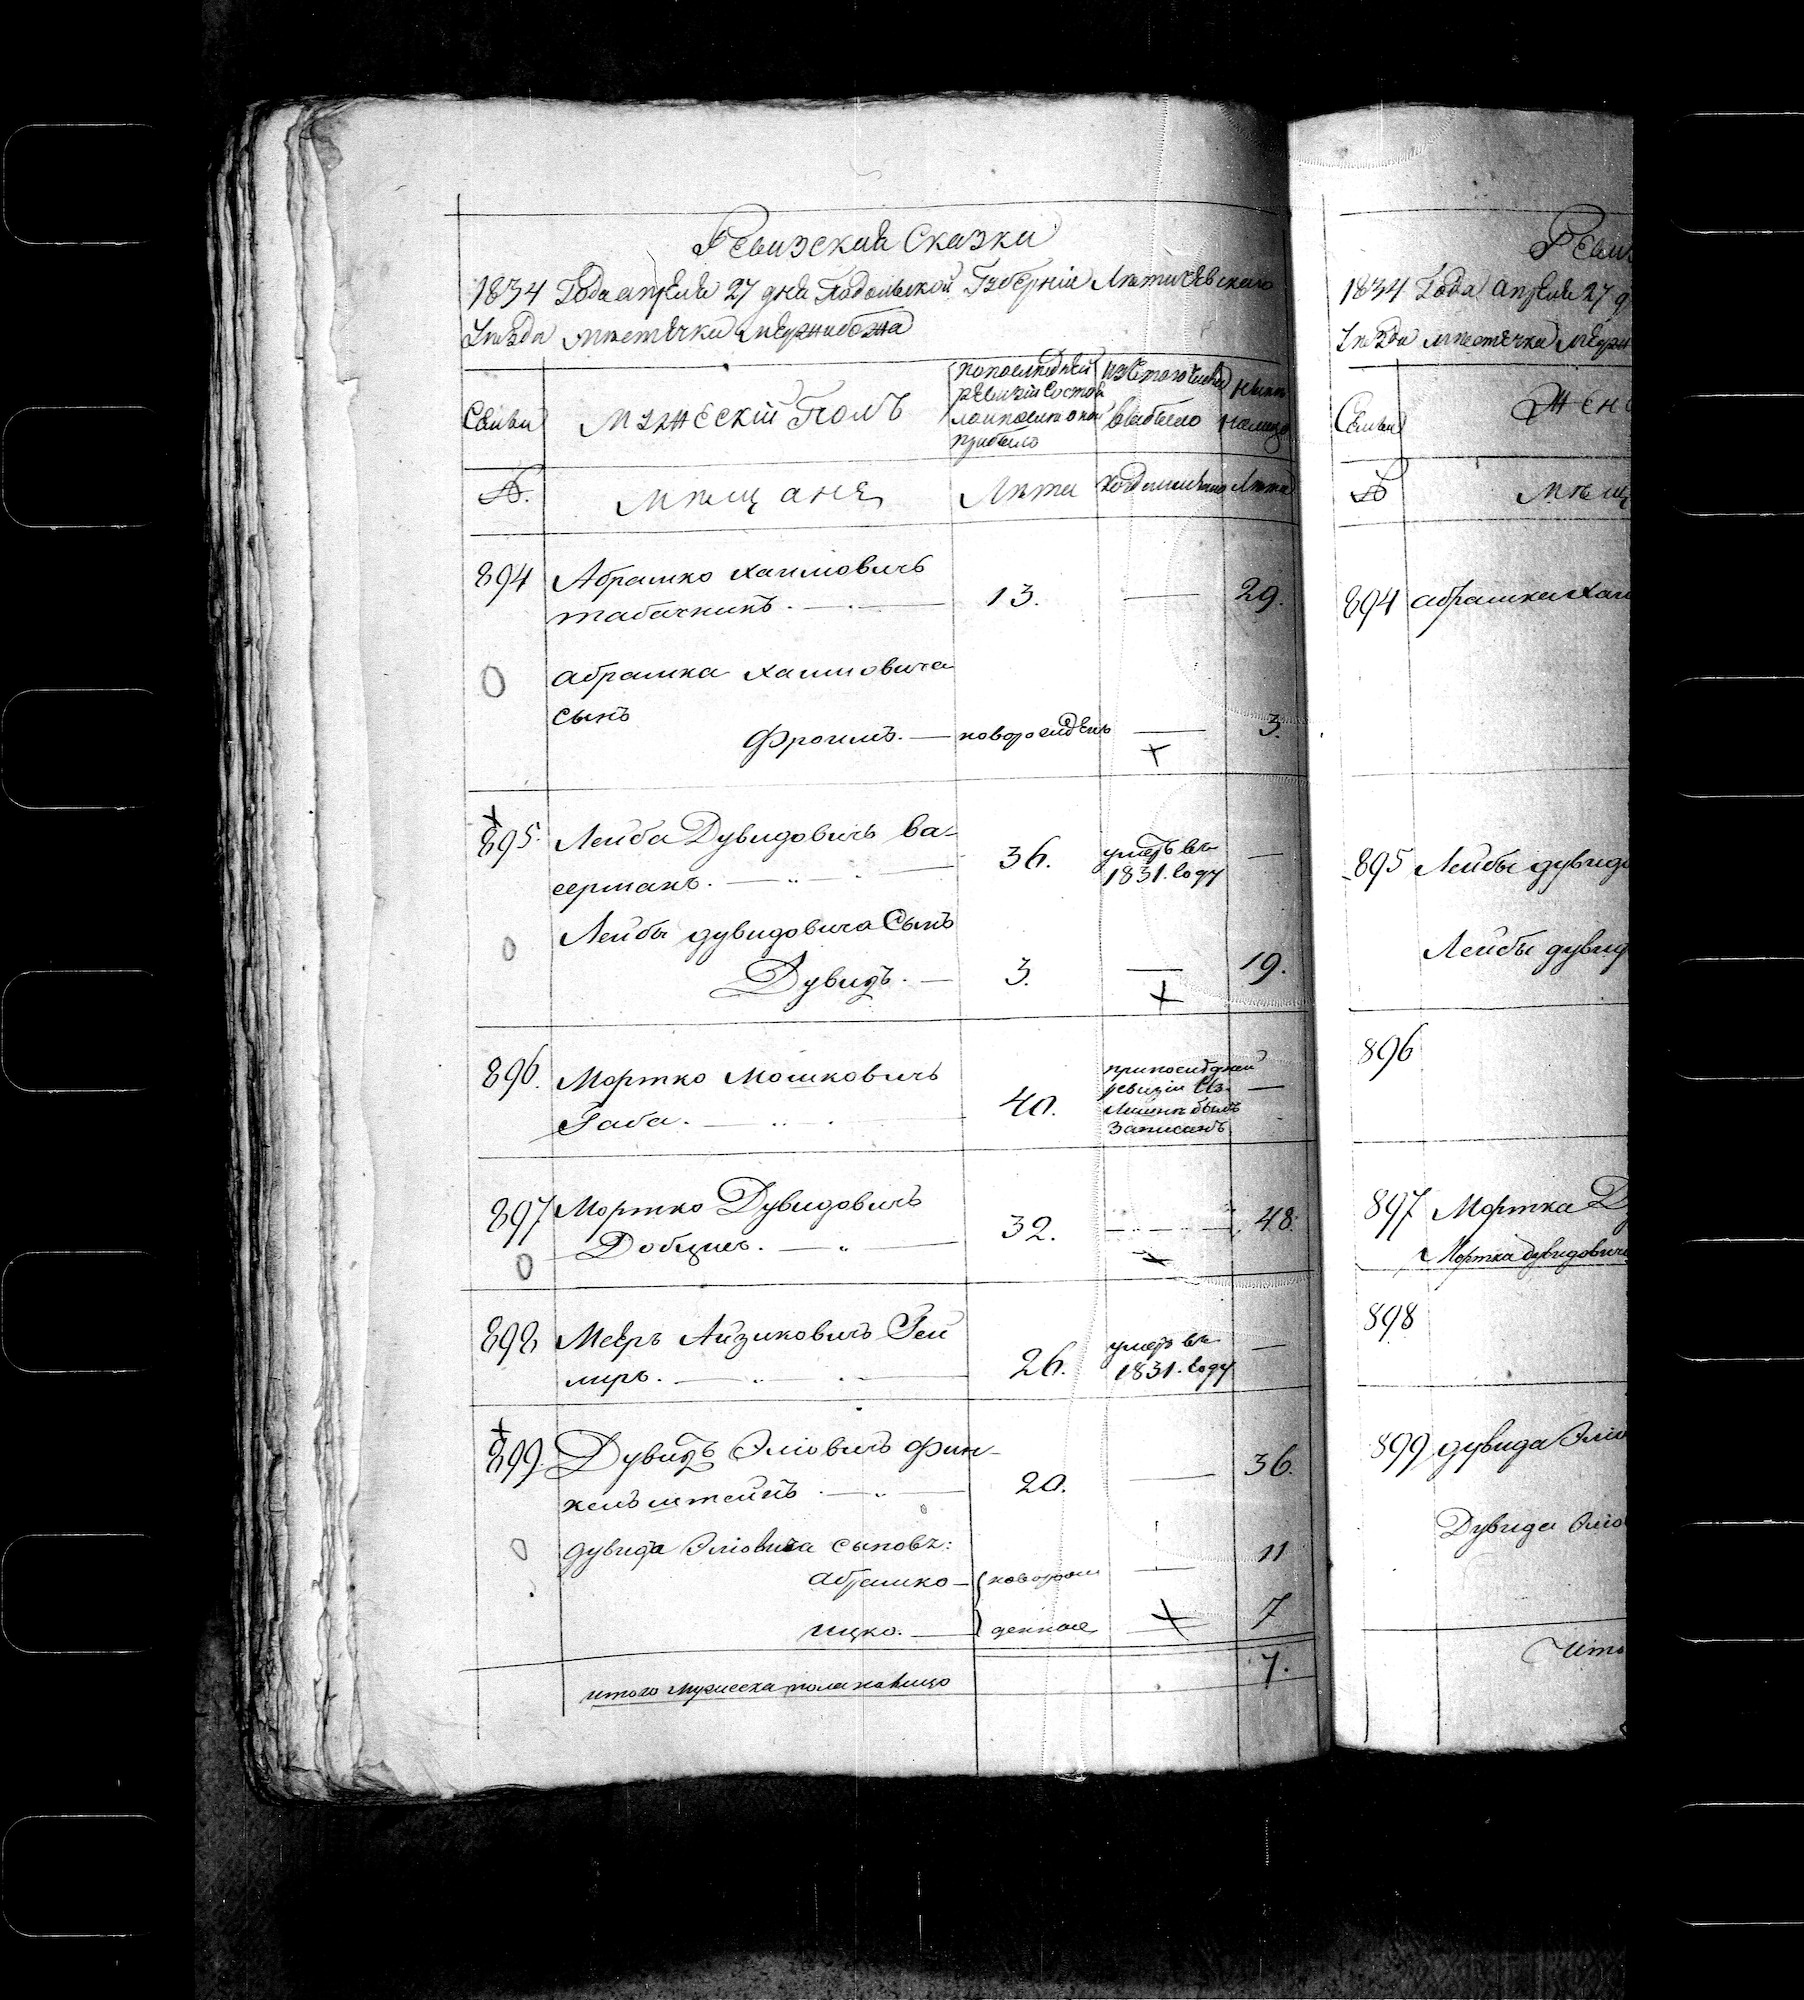 Ревизская Сказка
1834 Года апреля 27 дня Подольской Губерніи Летичевскаго
Уезда местечка Меджибожа
Семьи
Мужескій Полъ
По последней ревизіи состояло и после оной прибыло
Изъ того числа выбыло
Ныне на лицо
№.
Мещане
Лета
Когда именно
Лета
894 Абрамко Хаимовичъ
табачникъ. 13. — 29.
Абрамка Хаимовича
сынъ
Фроимъ. — новорожденъ — 3.
895. Лейба Дувидовичъ Ва-
серманъ. 36. умеръ въ 1831. году —
Лейбы Дувидовича Сынъ
Дувидъ. — 3. — 19.
896. Мортко Мошковичъ
Габа. 40. при последней ревизіи Из лишне былъ Записанъ —
897 Мортко Дувидовичъ
32. — 48
898 Мееръ Айзиковичъ Гей
меръ. 26. умеръ въ 1831. году —
899. Дувидъ Эліовичъ Фин-
кельштейнъ 20. — 36.
Дувида Эліовича сыновъ:
Абрамко — новорож — 11
Ицко. — денные — 7
итого мужеска пола на лицо 7.
Реви
1834 Года Апреля 27 д
Уезда местечка Медж
Семьи
Жен
№
Мещ
894 Абрамка Хаи
895 Лейбы Дувидо
Лейбы Дувид
896
897 Мортка Д
Мортка Дувидович
898
899 Дувида Эліо
Дувида Эліо
Ито